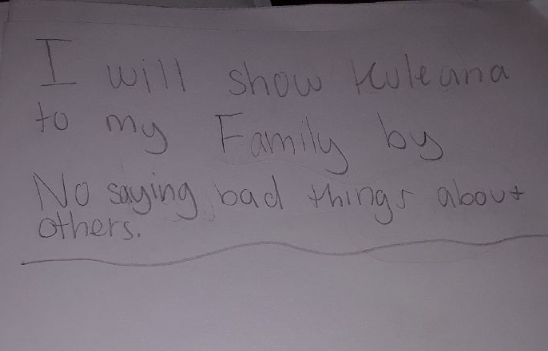 I will show Kuleana
to my Family by
No saying bad things about
others.